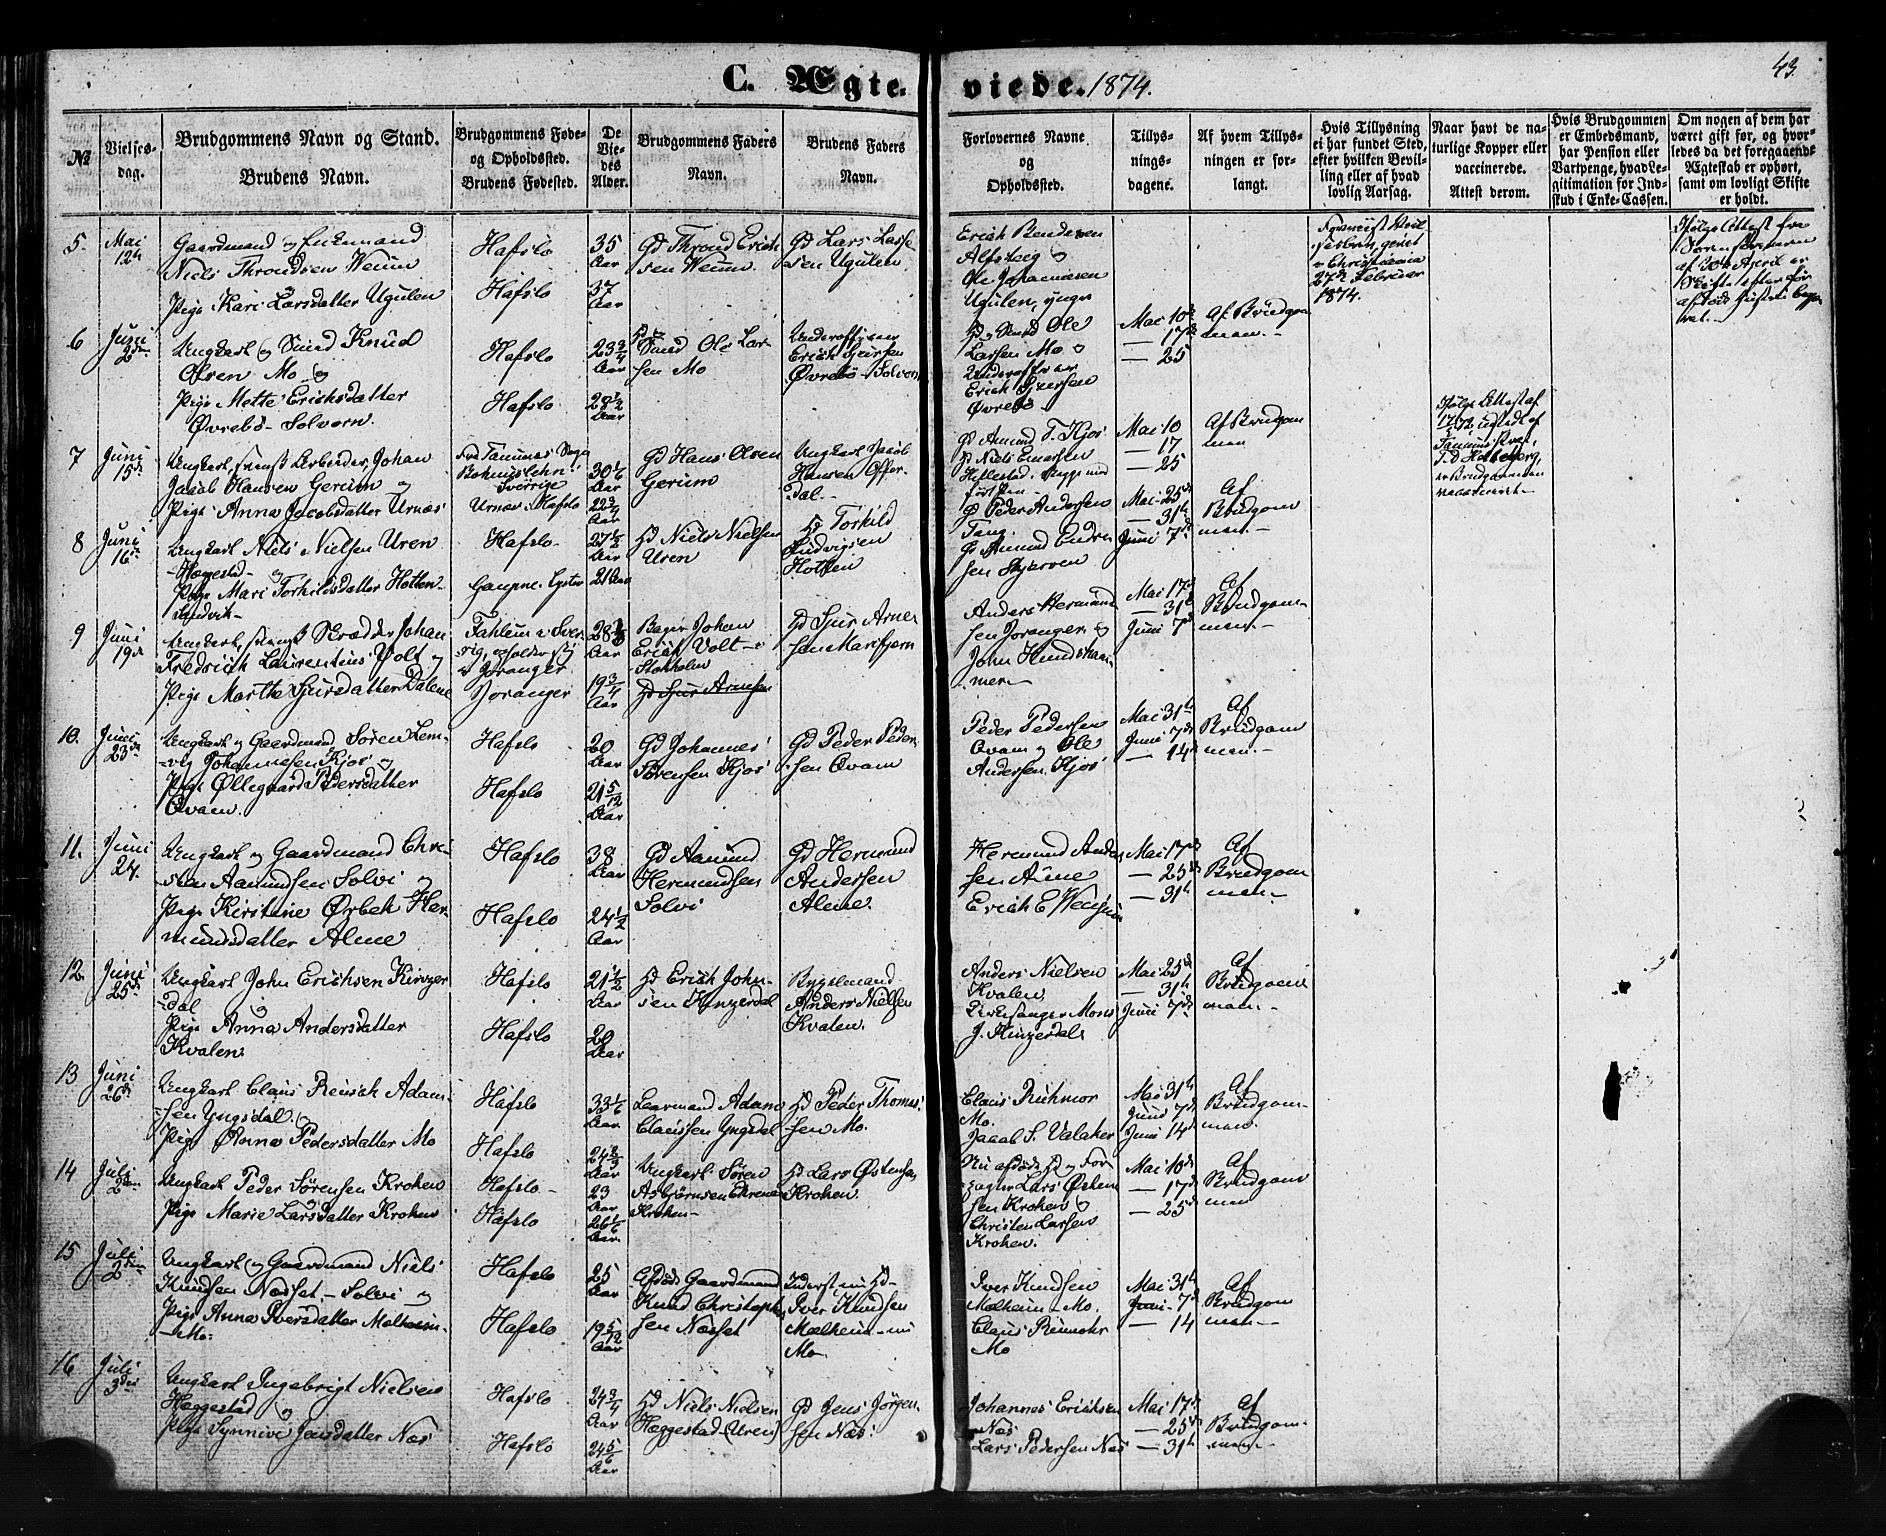 43.
C. Ægte-
viede. 1874.
№
Vielses-
dag.
Brudgommens Navn og Stand.
Brudens Navn.
Brudgommens Føde-
og Opholdssted.
Brudens Fødested.
De
Vie-
des
Alder.
Brudgommens Faders
Navn.
Brudens Faders
Navn.
Forlovernes Navne
og
Opholdssted.
Tillys-
nings-
dagene.
Af hvem Tillys-
ningen er for-
langt.
Hvis Tillysning
ei har fundet Sted,
efter hvilken Bevil-
ling eller af hvad
lovlig Aarsag.
Naar havt de na-
turlige Kopper eller
vaccinerede.
Attest derom.
Hvis Brudgommen
er Embedsmand,
har Pension eller
Vartpenge, hvad Le-
gitimation for Ind-
skud i Enke-Cassen.
Om nogen af dem har
været gift før, og hvor-
ledes da det foregaaende
Ægteskab er ophørt,
samt om lovligt Skifte
er holdt.
5.
Mai
12te
Gaardmand og Enkemand
Niels Throndsen Weum
Pige Kari Larsdatter Ugulen
Hafslo
Hafslo
35
Aar
37
Aar
Gd Thrond Erich
sen Weum
Gd Lars Lasse
sen Ugulen
Erich Bendixen
Alsteig og
Ole Johannesen
Ugulen, yngre
27de Februar
1874.
6
Juni
2den
Ungkarl og Smed Knud
Olsen Mo og
Pige Mette Erichsdatter
Øvrebø - Solvorn.
Hafslo
Hafslo
23 3/4
Aar
28 1/2
Aar
Smed Ole Lar-
sen Mo
Underofficeer
Erich Sjursen
Øvrebø - Solvorn
Smed Ole
Larsen Mo og
Underofficeer
Erich Sjursen
Øvrebø
Mai 10de
— 17de
— 25
Af Brudgom
men. -
7
Juni
15de
Ungkarl, svensk Arbeider Johan
Jacob Hansen Gerum og
Pige Anna Jacobsdatter Urnæs
Sverrige
Urnæs i Hafslo
30 1/6
Aar
22 3/4
Aar
Gd Hans Olsen
Gerum
Ungkarl Jacob
Hansen Offer-
dal. -
Gd Amund T. Kjos
Mai 10
— 17
— 25
Af Brudgom
men
8
Juni
16de
Ungkarl Niels Nielsen Uren
- Heggestad - og
Pige Mari Torkildsdatter Hotten-
Sandvik -
Hafslo
Gaupne. Lyster
27 1/2
Aar
21 Aar
Gd Niels Nielsen
Uren
Gd Torkild
Ludvigsen
Hotten
Gd Peder Andersen
Tang.
Mai 25de
— 31te
Juni 7de
Af
Brudgom
men. -
9
Juni
19de
Ungkarl, svensk Skrædder Johan
Fredrich Laurentius Volt og
Pige Marthe Sjursdatter Dalene
Joranger
Joranger
Aar
19 3/4
Aar
Bager Johan
Erich Volt -
Stokholm
Gd Sjur Arnesen
Gd Sjur Arne-
sen Marifjæren
Anders Hermund
sen Joranger og
Mai 17de
— 31te
Juni 7de
Af
Brudgom-
men. -
10.
Juni
23de
Ungkarl og Gaardmand Søren Lem-
vig Johannesen Kjos og
Pige Øllegaard Pedersdatter
Qvam.
Hafslo
Hafslo
20
Aar
21 5/12
Aar
Gd Johannes
Sørensen Kjos
Gd Peder Peder-
sen Qvam
Peder Pedersen
Qvam og Ole
Andersen Kjos
Mai 31te
Juni 7de
— 14de
Af
Brudgom
men. -
11.
Juni
24.
Ungkarl og Gaardmand Chri-
sten Aamundsen Solvi og
Pige Kirstine Ørbek Her-
mundsdatter Alme
Hafslo
Hafslo
38
Aar
24 1/2
Aar
Gd Aamund
Hermundsen
Solvi
Gd Hermund
Andersen
Alme.
Hermund Ander
sen Alme
Mai 17de
— 25de
— 31te
Af
Brudgom
men. -
12.
Juni
25de
Ungkarl John Erichsen Kinzer
dal og
Pige Anna Andersdatter
Kvalen.
Hafslo
Hafslo
21 1/2
Aar
20
Aar
Gd Erich John-
sen Kinzerdal
Bygselmand
Anders Nielsen
Kvalen.
Anders Nielsen
Kvalen
Kirkesanger Mons
J. Kinzerdal.
Mai 25de
— 31te
Juni 7de
Af
Brudgom
men. -
13
Juni
26de
Ungkarl Claus Reusch Adam-
sen Yngsdal. og
Pige Anna Pedersdatter Mo
Hafslo
Hafslo
33 1/6
Aar
24 2/3
Aar
Leermand Adam
Claussen Yngsdal
Gd Peder Thomes-
sen Mo.
Claus Riihmor
Mo.
Jacob S. Valaker
Mai 31te
Juni 7de
Juni 14de
Af
Brudgom-
men.
14
Juli
2den
Ungkarl Peder Sørensen Kroken
Pige Marie Larsdatter Kroken
Hafslo -
Hafslo
23
Aar
26 1/6
Aar
Ungkarl Søren
Kroken -
Gd Lars Østensen
Kroken.
Nu afdøde Gd og For
sanger Lars Østen
sen Kroken og
Christen Larsen
Kroken.
Mai 10de
— 17de
— 25de
Af
Brudgom
men
15
Juli
2den
Ungkarl og Gaardmand Niels
Knudsen Næsset - Solvi og
Pige Anna Iversdatter Molheim-
- Mo -
Hafslo
Hafslo
25
Aar
19 5/12
Aar
Afdøde Gaardmand
Knud Christoph
sen Næsset
Inderst nu Gd -
Iver Knudsen
Mælheim - nu
Mo.
Iver Knudsen
Mælheim - Mo.
Claus Riimohr
Mo
Mai 31te
Juni - 7de
— 14
Af
Brudgom
men. -
16
Juli
3die
Ungkarl Ingebrigt Nielsen
Heggestad og
Pige Synneve Jensdatter Næs
Hafslo
Hafslo
24 3/4
Aar
24 5/6
Aar
Gd Niels Nielsen
Heggestad (Uren)
Gd Jens Jørgen-
sen Næs.
Johannes Erichsen
Næs
Lars Pedersen Næs
Mai 17de
— 25de
— 31te
Af
Brudgom-
men. -